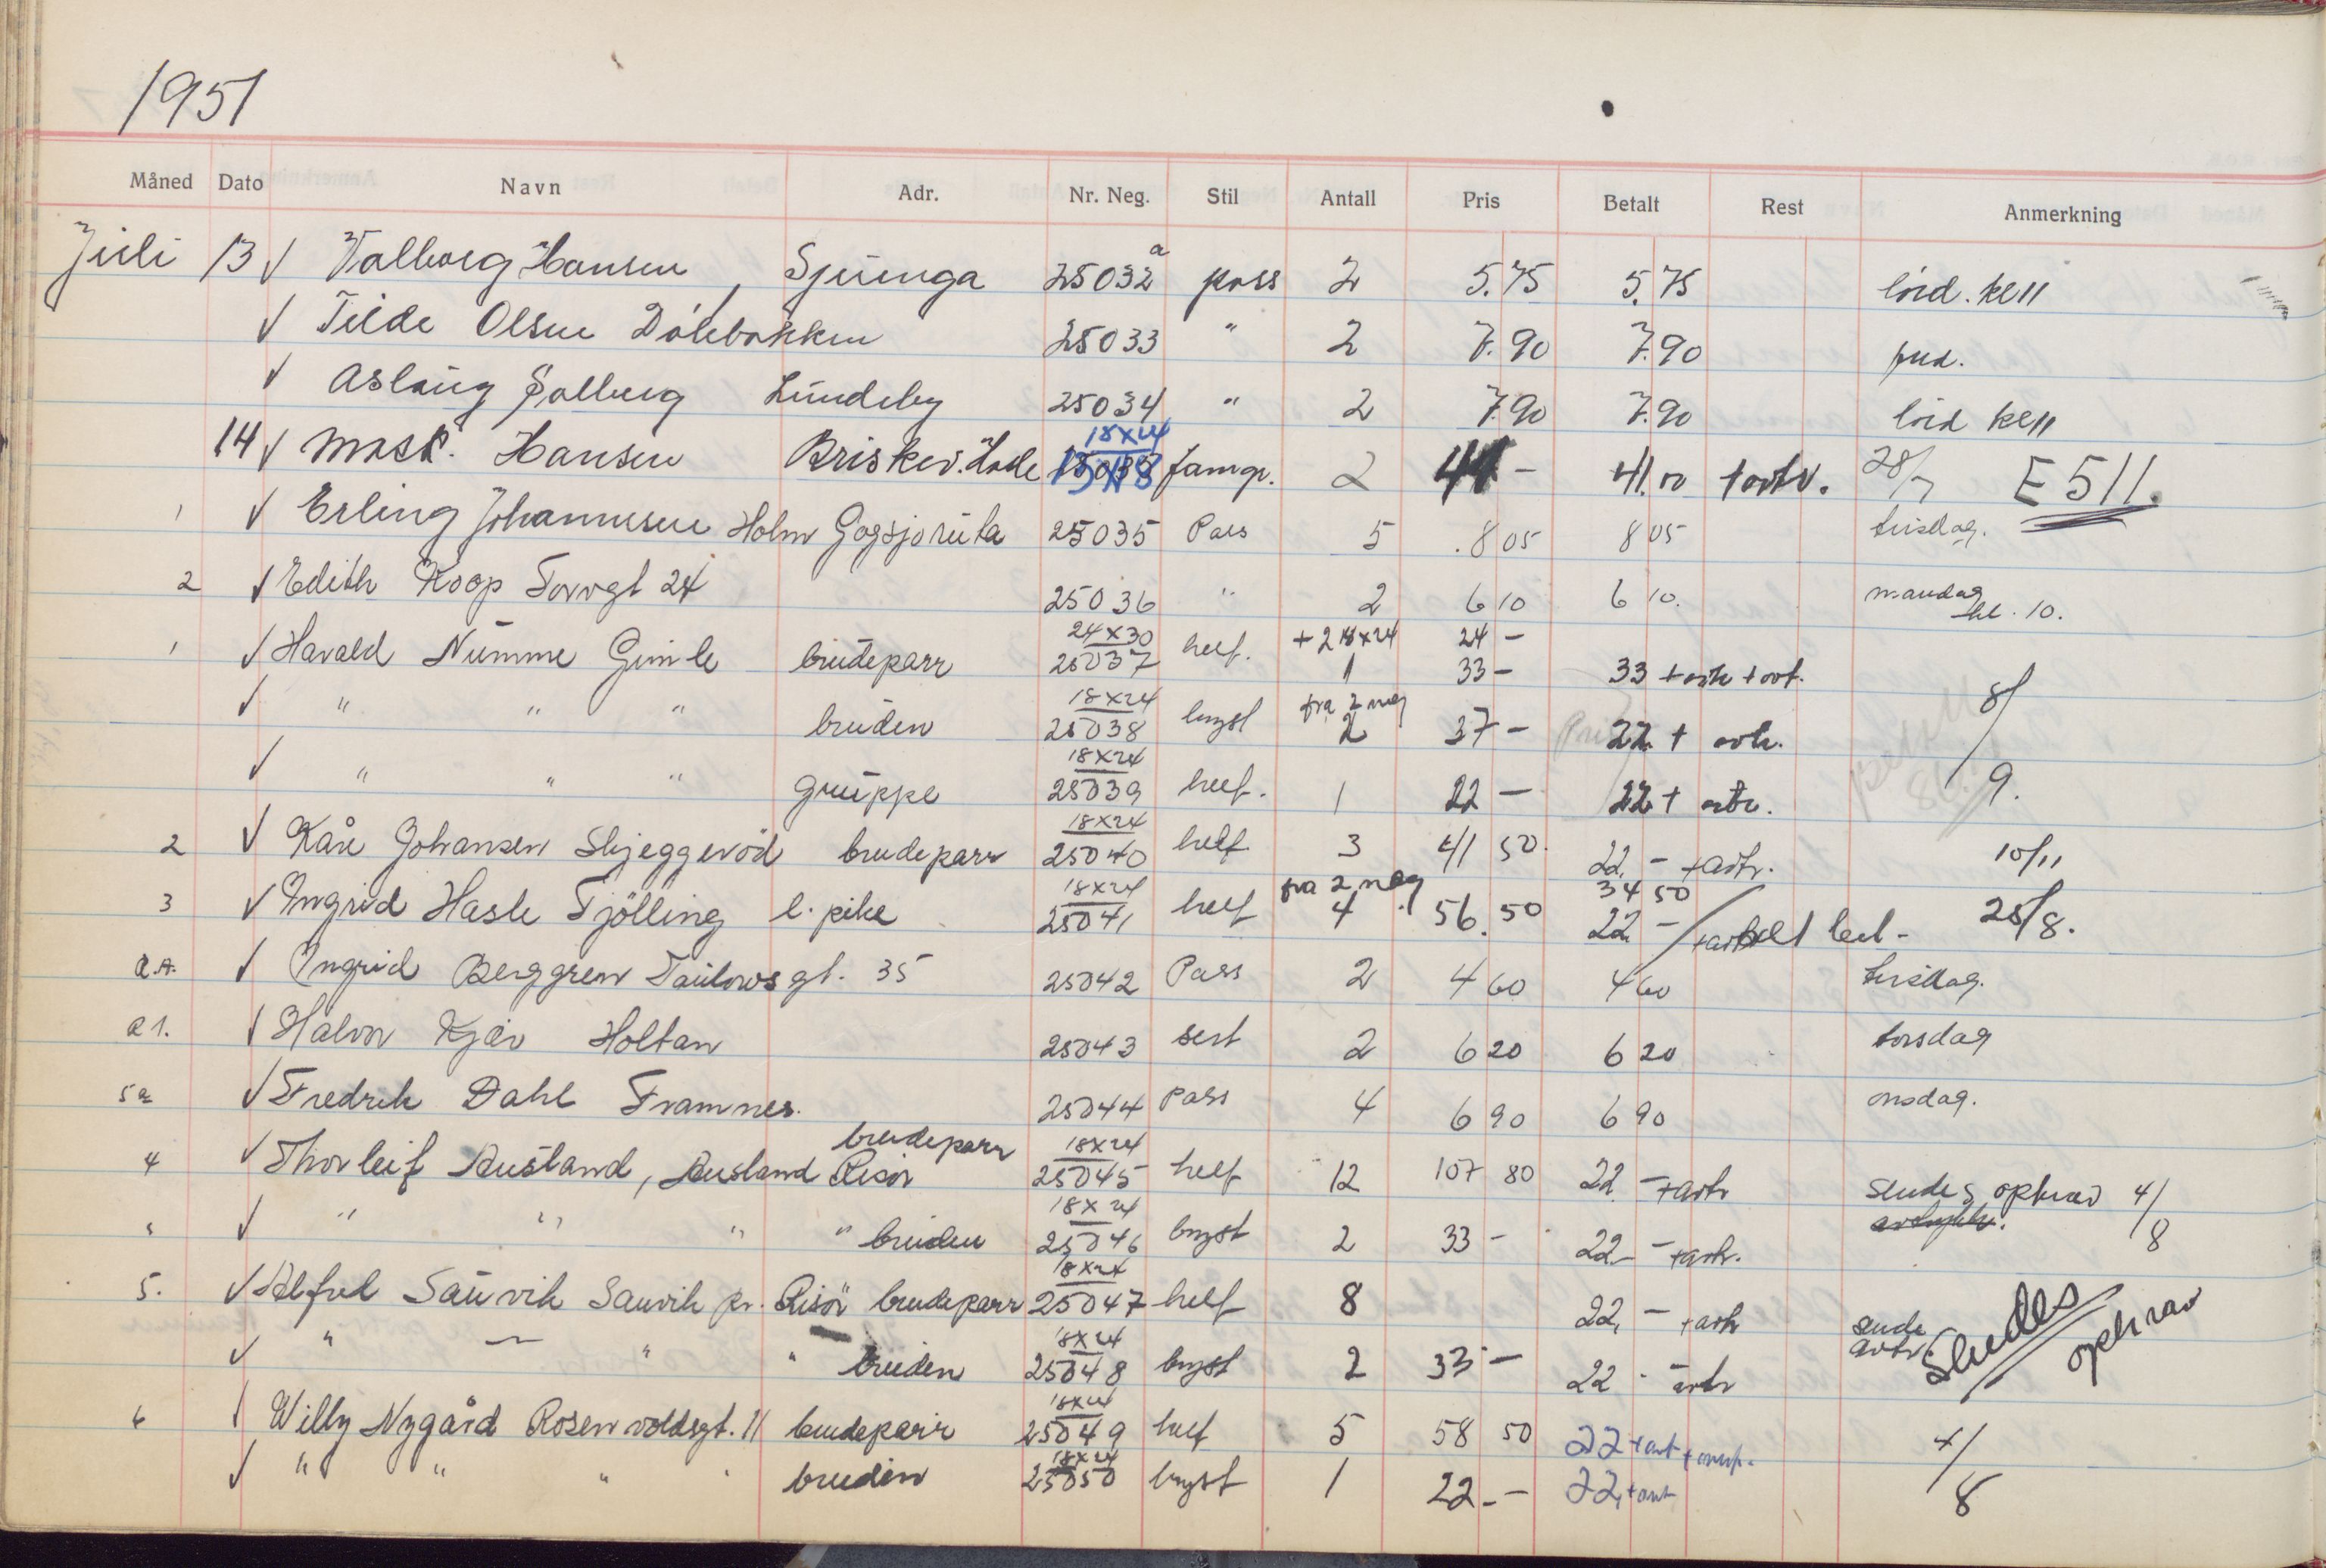 1951
Måned Dato Navn Adr. Nr. Neg. Stil Antall Pris Betalt Rest Anmerkning
Juli 13 √ Valborg Hansen, Spjunga 25032a pass 2 5.75 5.75 lörd. kl 11
√ Tilde Olsen Dölebakken 25033 " 2 7.90 7.90
√ Aslaug Solberg Lundeby 25034 " 2 7.90 7.90 lörd kl 11
18x24
14 √ Mask. Hansen Briskev. famgr. 2 41 - 41.00 + avtr. 28/7 E 511.
1 √ Erling Johannesen Holm Gogsjøruta 25035 Pass 5 8 05 8 05 tirsdag.
2 √ Edith Koop Torvgt 24 25036 " 2 6 10 6 10. mandag kl. 10.
24x30 + 2 18x24 24 -
1 √ Harald Numme Gimle brudeparr 25037 helf. 1 33 - 33 + avtr + ovt.
18x24 fra 2 neg 8/
√ " " " bruden 25038 byst 2 37 - 22 + avtr.
18x24
√ " " " gruppe 25039 helf. 1 22 - 22 + avtr. 9.
18x24
2 √ Kåre Johansen Skjeggeröd brudeparr 25040 helf 3 41 50. 22,- + avtr. 10/11
18x24 fra 2 neg 34 50
3 √ Ingrid Hasle Tjölling l. pike 25041 helf 4 56.50 22 - + avtr helt bet - 25/8.
√ Ingrid Berggren Taulowsgt. 35 25042 Pass 2 4 60 4 60 tirsdag.
√ Halvor Kjær Holtan 25043 sert 2 6 20 6 20 torsdag
√ Fredrik Dahl Framnes. 25044 pass 4 6 90 6 90 onsdag.
brudeparr 18x24
4 √ Thorleif Ausland, Ausland Risör 25045 helf 12 107 80 22 - + avtr sendes opkrav 4/8
18x24
√ " " " " bruden 25046 byst 2 33 - 22 - + avtr.
18x24
5. √ Alfred Sauvik Sauvik pr. Risör brudeparr 25047 helf 8 22,- + avtr sende avtr Sendes opkrav
18x24
√ " — " " bruden 25048 byst 2 33 - 22 - avtr
18x24
6 √ Willy Nygård Rosenvoldsgt. 11 brudeparr 25049 helf 5 58 50 22 + avt 4/8
18x24
√ " " " " bruden 25050 byst 1 22 - - 22, + avt